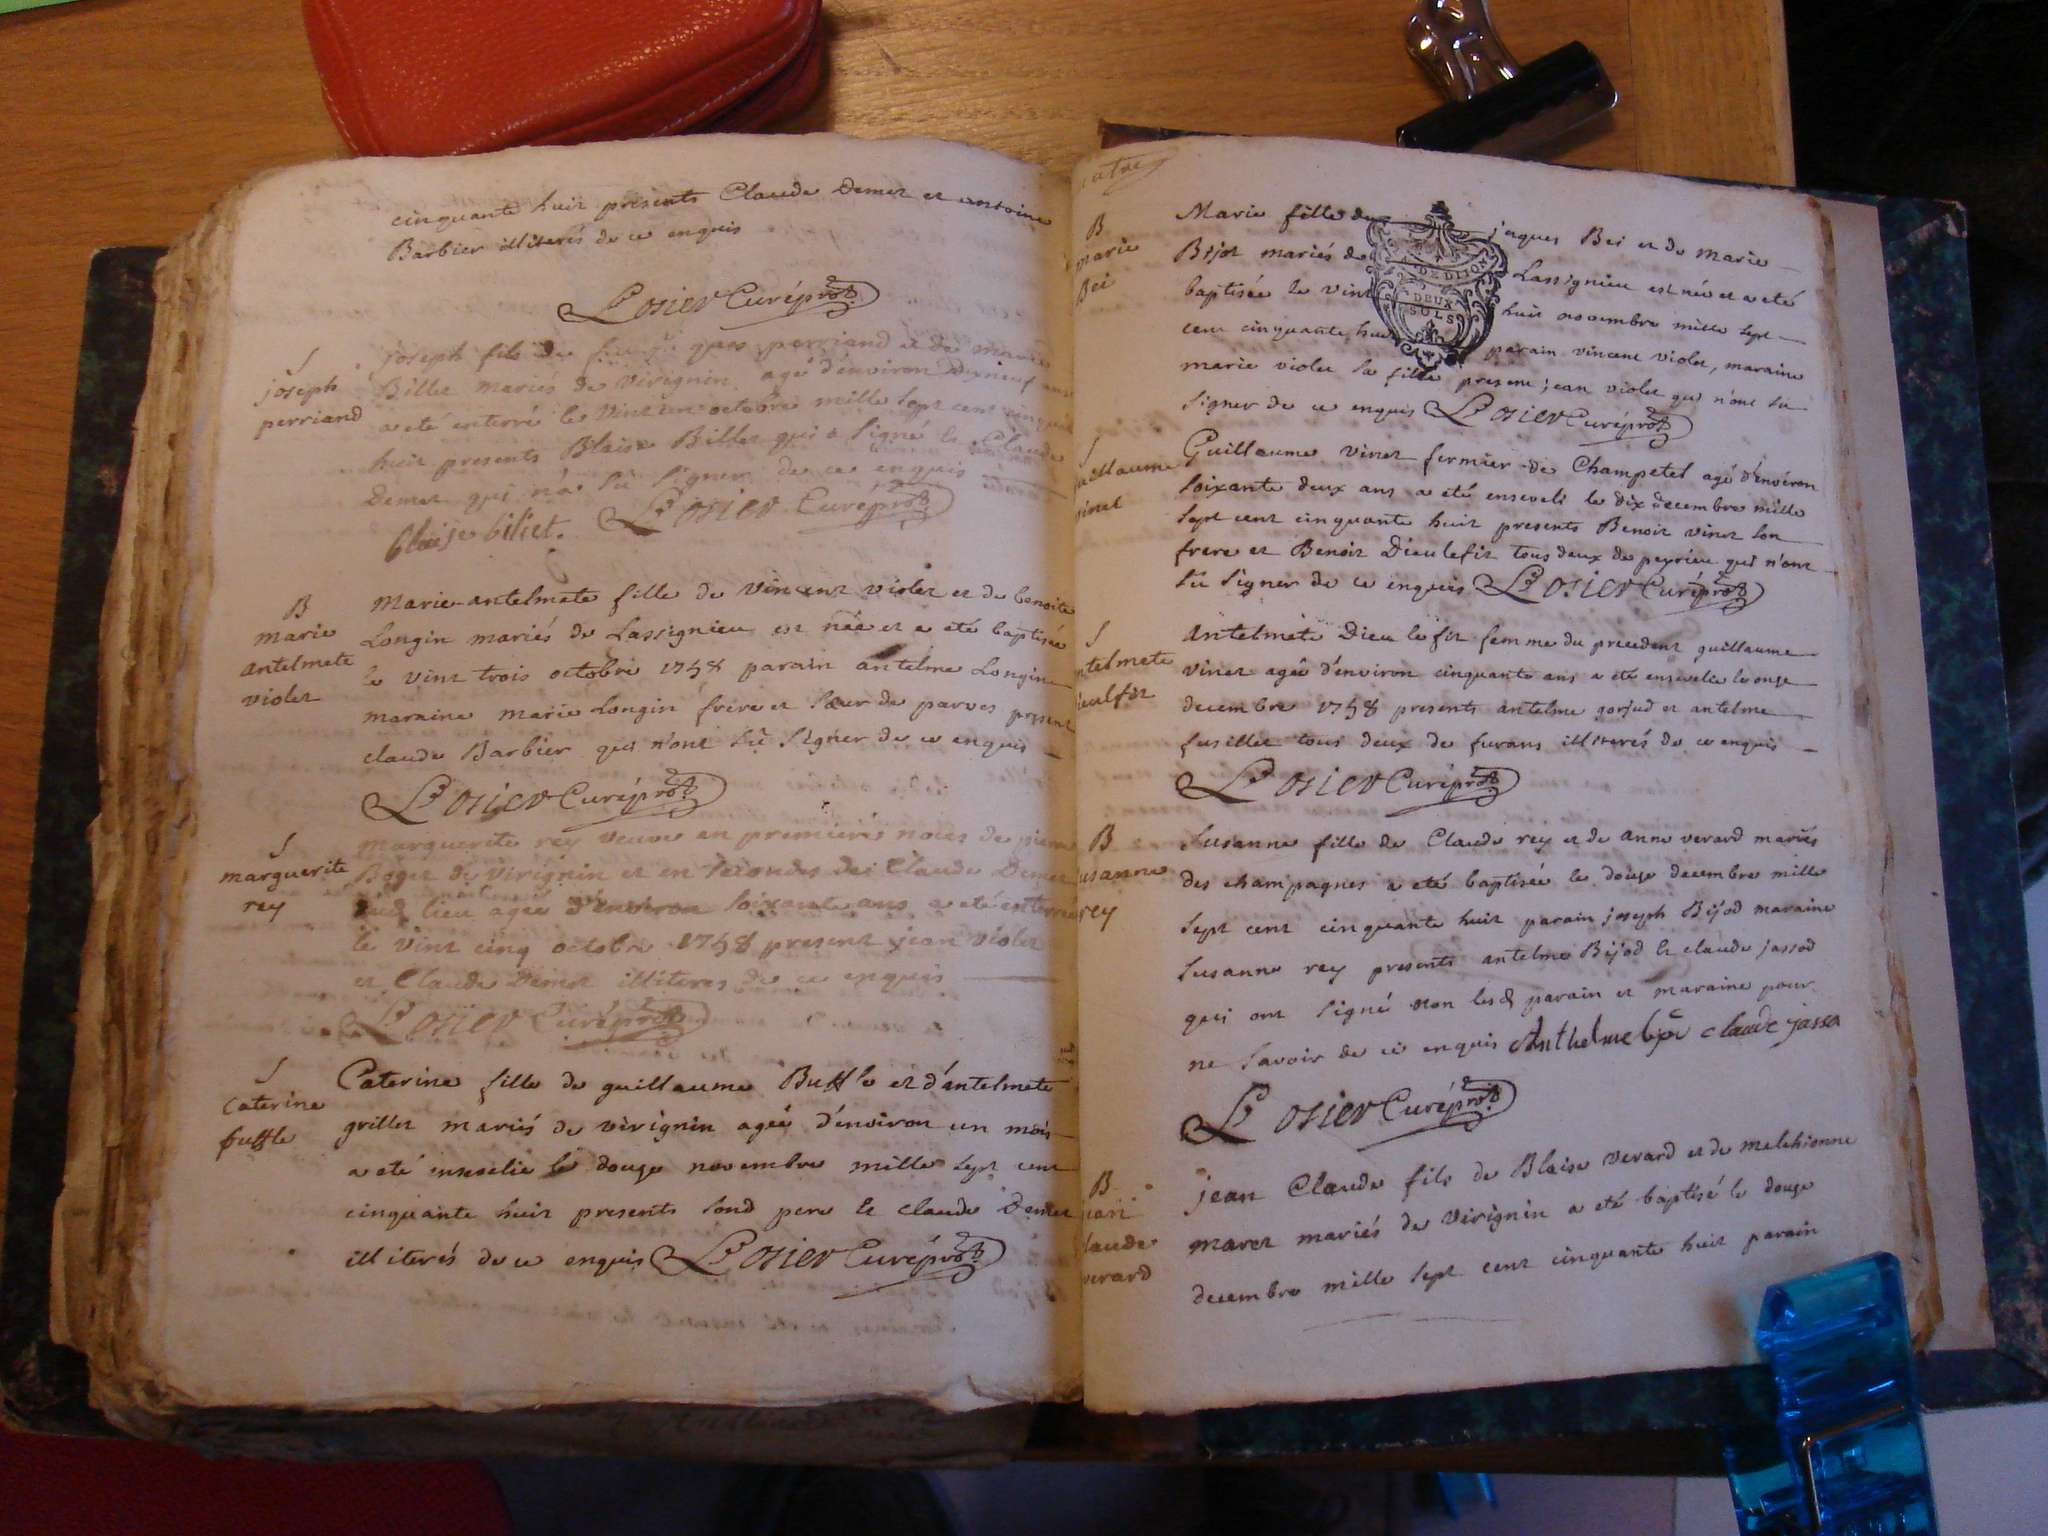 cinquante huit presents Claude Demet et antoine
Barbier illiterés de ce enquis
L'osier Curé prot.
S
joseph
perriand
joseph fils de perriand et de marie
Billet mariés de virignin agé d'environ dixneuf ans
a eté enterré le vint un octobre mille sept cent cinquante
huit presents Blaise Billet qui a signé et Claude
Demet qui n'a sû signer de ce enquis
blaise biliet. L'osier Curé prot.
B
marie
antelmete
violet
Marie-antelmete fille de vincent violet et de benoite
Longin mariés de Lassignieu est née et a eté baptisée
le vint trois octobre 1758 parain antelme Longin
maraine marie Longin frere et sœur de parves present
claude Barbier qui n'ont sû signer de ce enquis
L'osier Curé prot.
S
marguerite
rey
marguerite rey veuve en premieres noces de pierre
Boget de virignin et en secondes de Claude Demet
dud lieu agée d'environ soixante ans a eté enterrée
le vint cinq octobre 1758 present jean violet
et Claude Demet illiteres de ce enquis
L'osier Curé prot.
S
caterine
buffle
Caterine fille de guillaume Buffle et d'antelmete
grillet mariés de virignin agée d'environ un mois
a eté insevelie le douze novembre mille sept cent
cinquante huit presents sond pere et claude Demet
illiterés de ce enquis L'osier Curé prot.
B
marie
Bei
Marie fille de jaques Bei et de marie
Bijot mariés de Lassignieu est née et a eté
baptisée le vint huit novembre mille sept
cent cinquante huit parain vincent violet, maraine
marie violet sa fille present jean violet qui n'ont sû
signer de ce enquis L'osier Curé prot.
G. DE DIJON
DEUX
SOLS
S
guillaume
vinet
Guillaume vinet fermier de Champetel agé d'environ
soixante deux ans a eté enseveli le dix decembre mille
sept cent cinquante huit presents Benoit vinet son
frere et Benoit Dieulefit tous deux de peyrieu qui n'ont
sû signer de ce enquis L'osier Curé prot.
S
antelmete
dieulefit
Antelmete Dieu le fit femme du precedent guillaume
vinet agée d'environ cinquante ans a eté ensevelie le onze
decembre 1758 presents antelme gorjud et antelme
fusillet tous deux de furans illiterés de ce enquis
L'osier Curé prot.
B
susanne
rey
Susanne fille de Claude rey et de anne verard mariés
des champagnes a eté baptisée le douze decembre mille
sept cent cinquante huit parain joseph Bijod maraine
susanne rey presents antelme Bijod et claude jassod
qui ont signé non lesd parain et maraine pour
ne savoir de ce enquis Anthelme claude jassa
L'osier Curé prot.
B
jean
claude
verard
jean Claude fils de Blaise verard et de melchionne
maret mariés de virignin a eté baptisé le douze
decembre mille sept cent cinquante huit parain